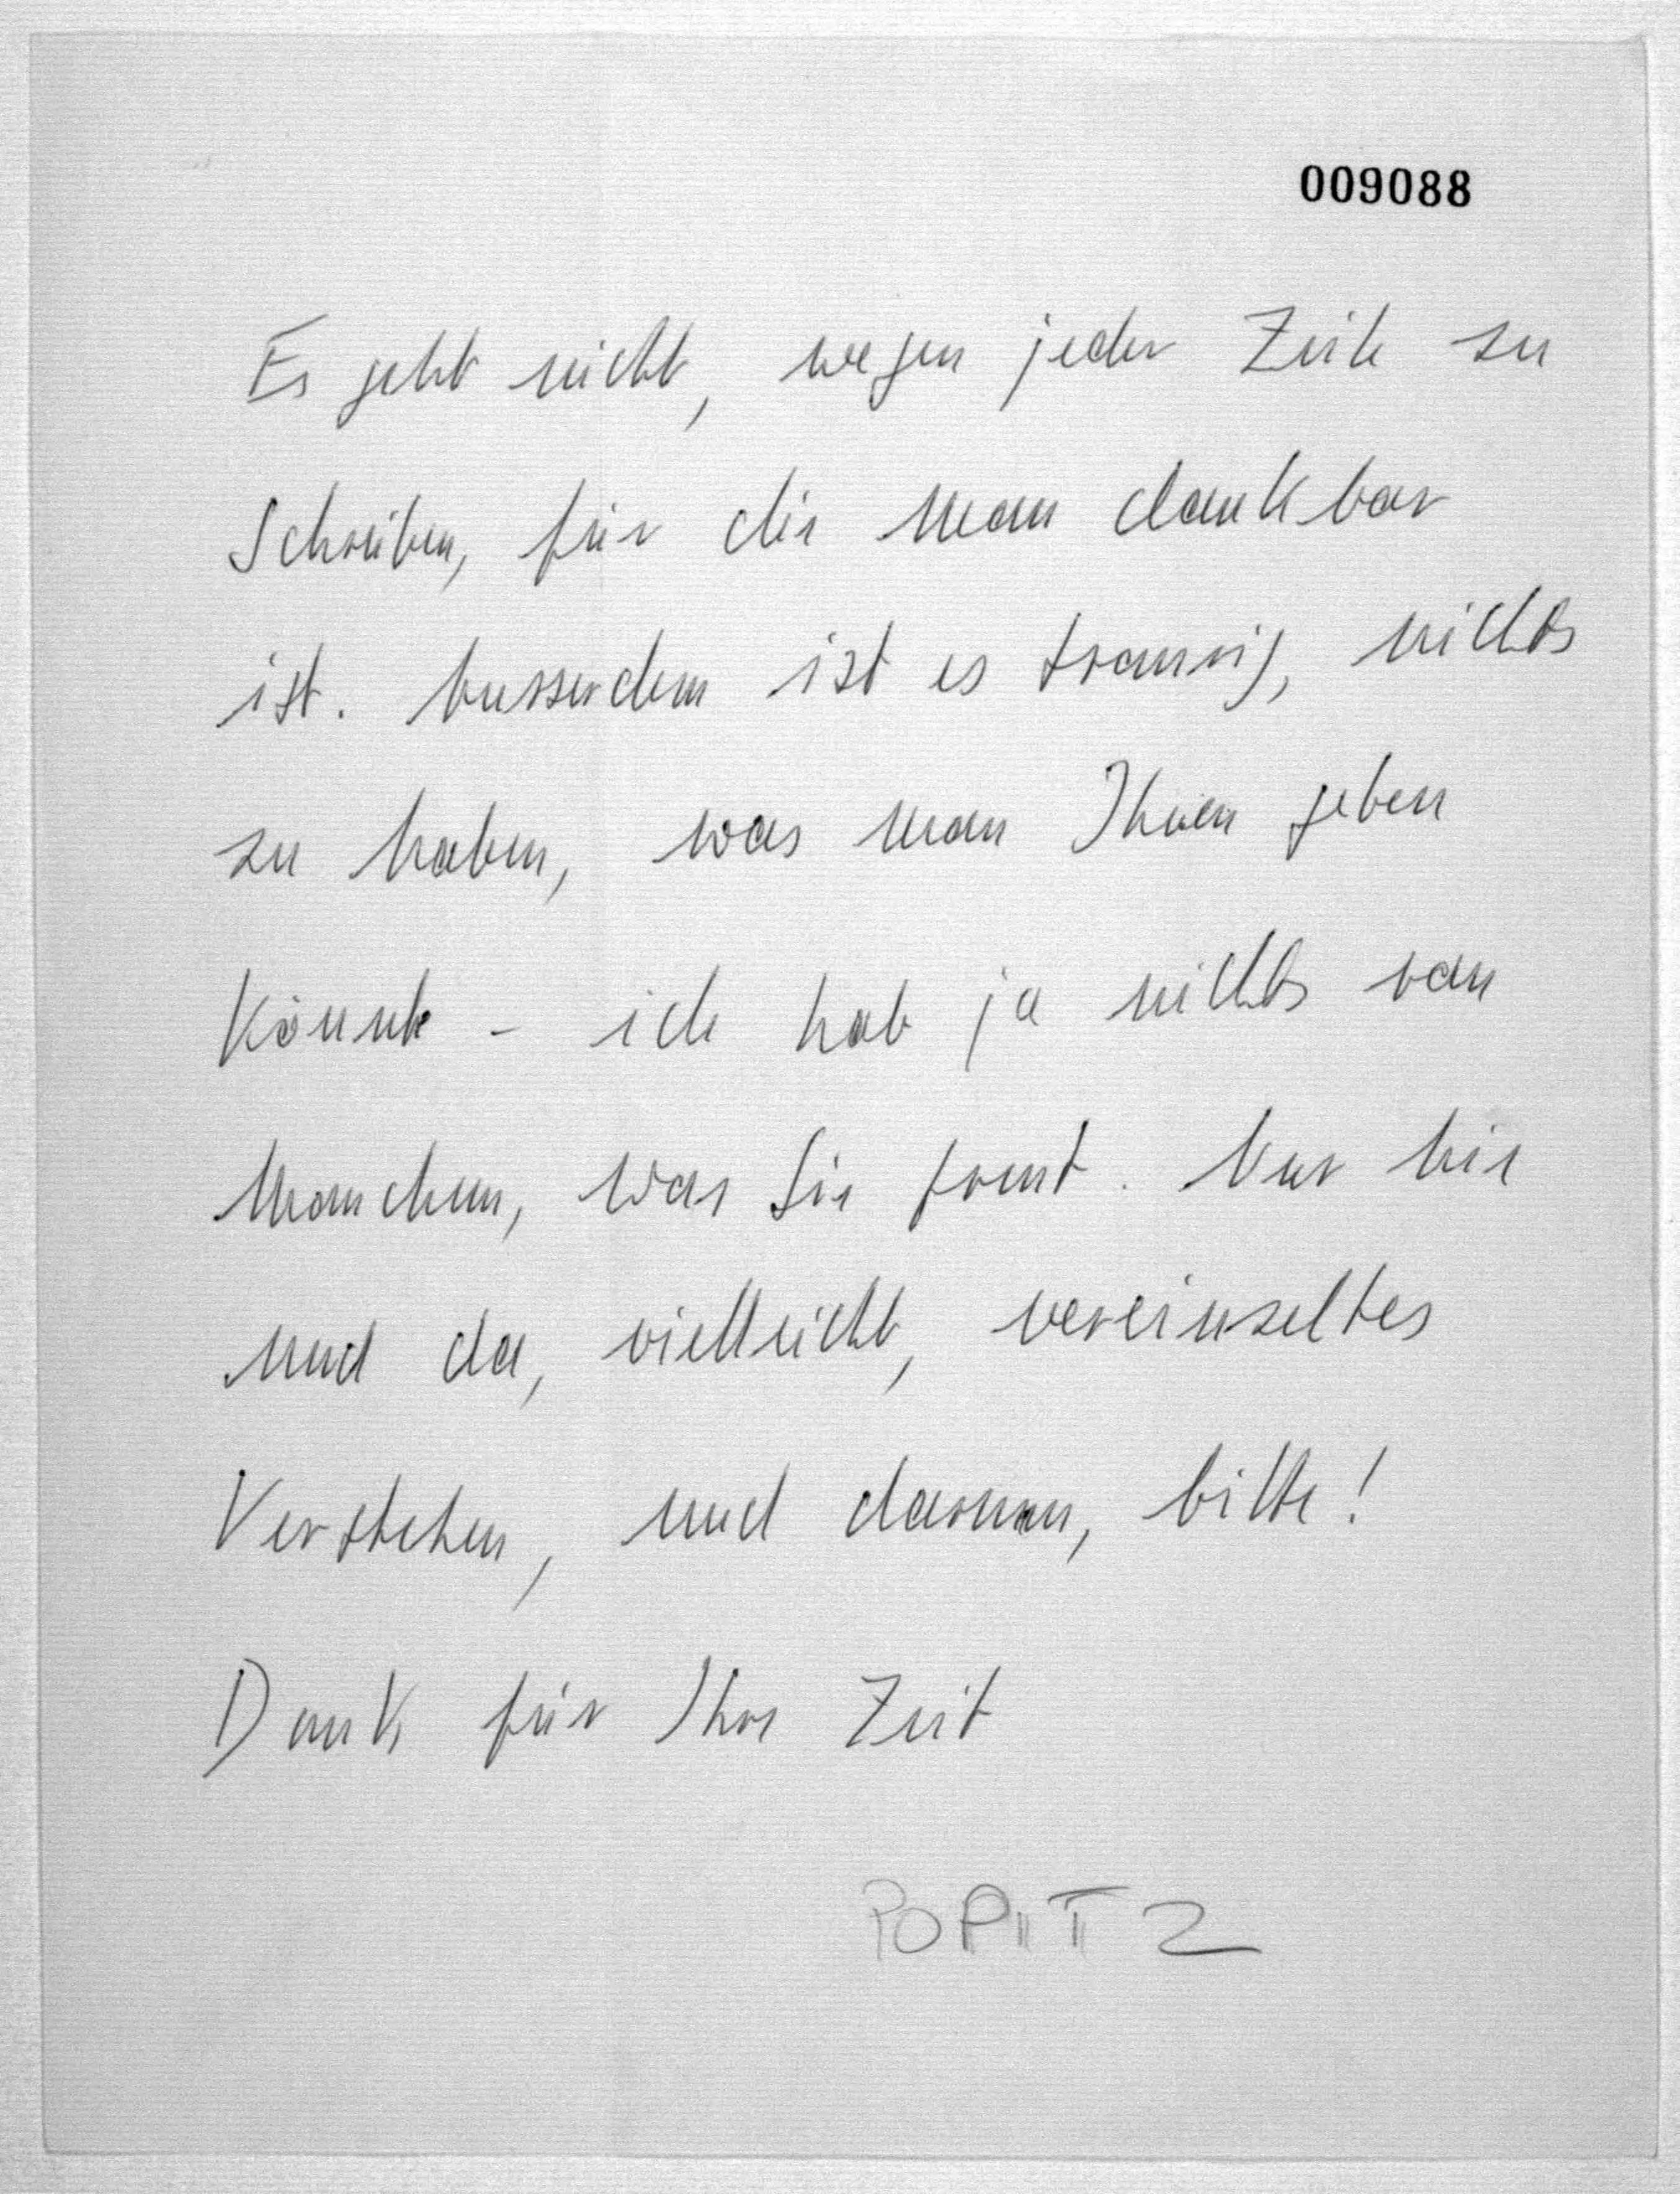 009088
Es geht nicht, wegen jeder Zeile zu
Schreiben, für die man dankbar
ist. Ausserdem ist es traurig, nichts
zu haben, was man Ihnen geben
könnte - ich hab ja nichts von
Manchem, was Sie freut. Nur hie
und da, vielleicht, vereinzeltes
Verstehen, und darum, bitte!
Dank für Ihre Zeit
POPITZ